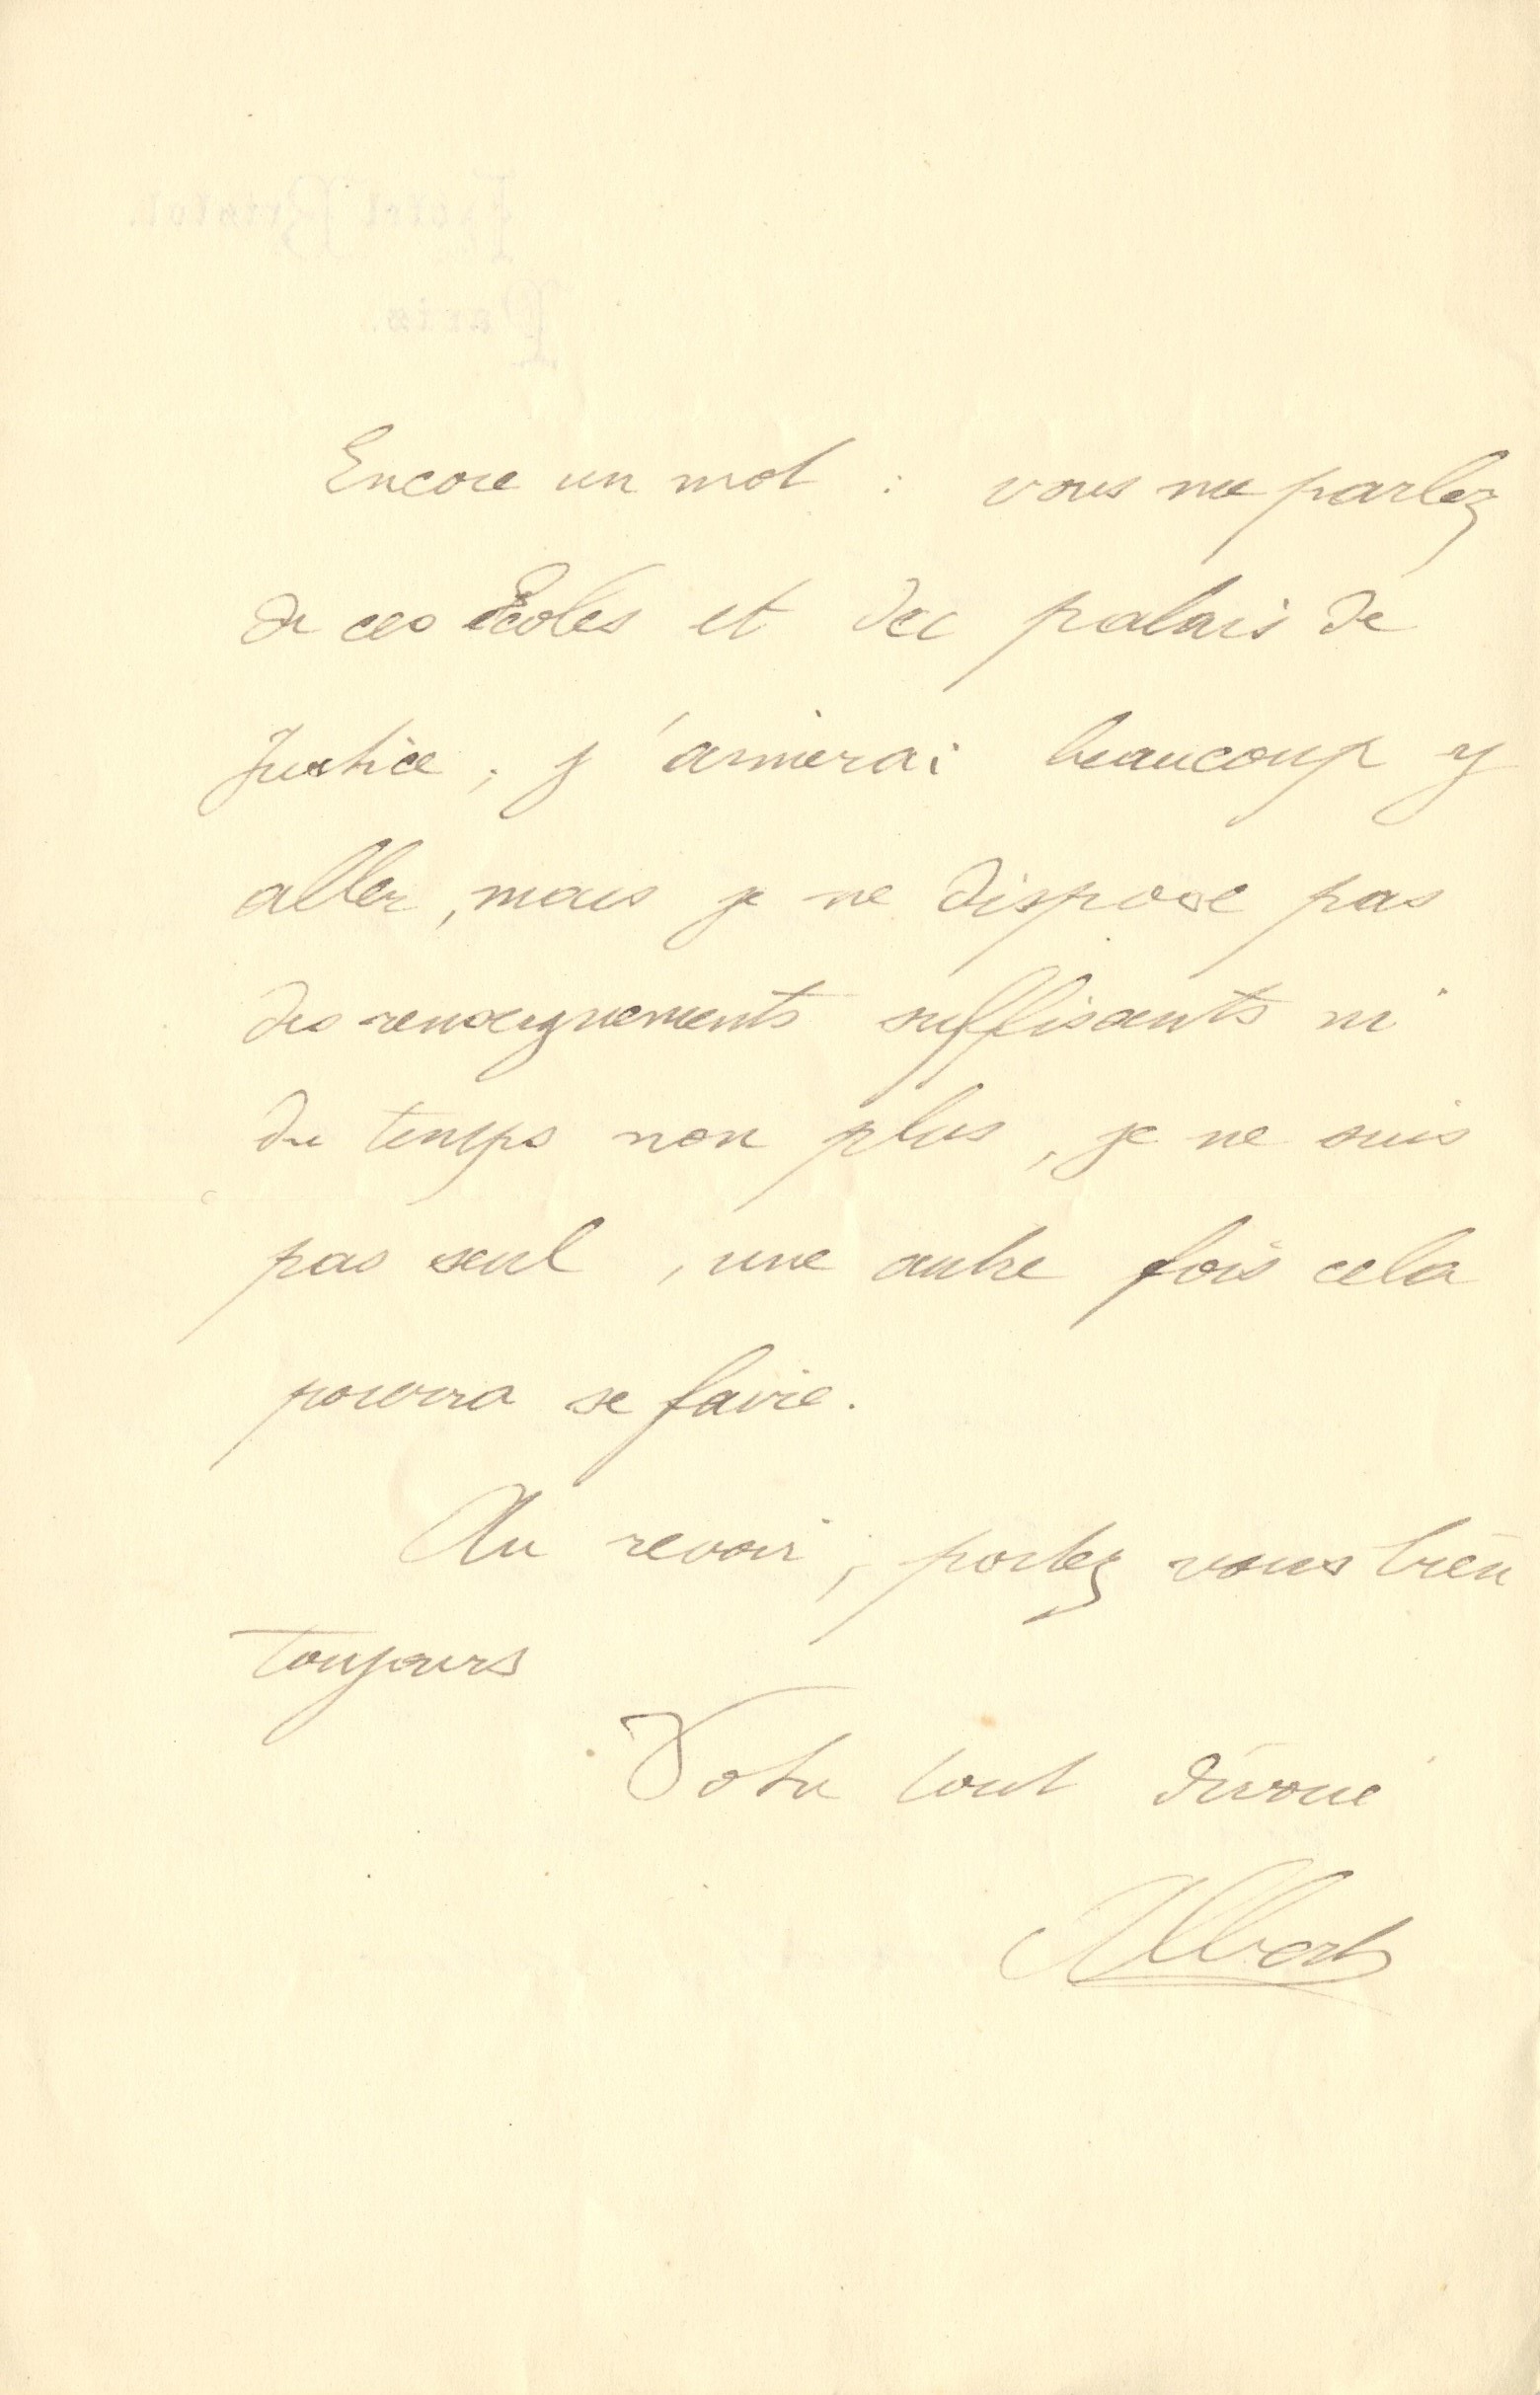 Hotel Bristol.
Paris.
Encore un mot : vous me parlez
de ces Ecoles et du palais de
Justice, j'aimerai beaucoup y
aller, mais je ne dispose pas
des renseignements suffisants ni
du temps non plus, je ne suis
pas seul, une autre fois cela
pourra se faire.
Au revoir, portez vous bien
toujours
Votre tout dévoué
Albert